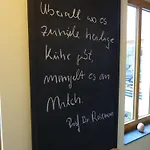 Überall wo es
zuviele heilige
Kühe gibt,
mangelt es an
Milch.
Prof. Dr.